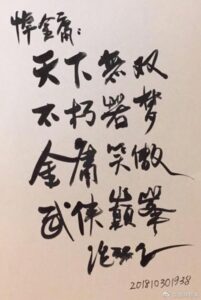 悼金庸:
天下無双
不朽若梦
金庸笑傲
武侠巔峯
201810301938